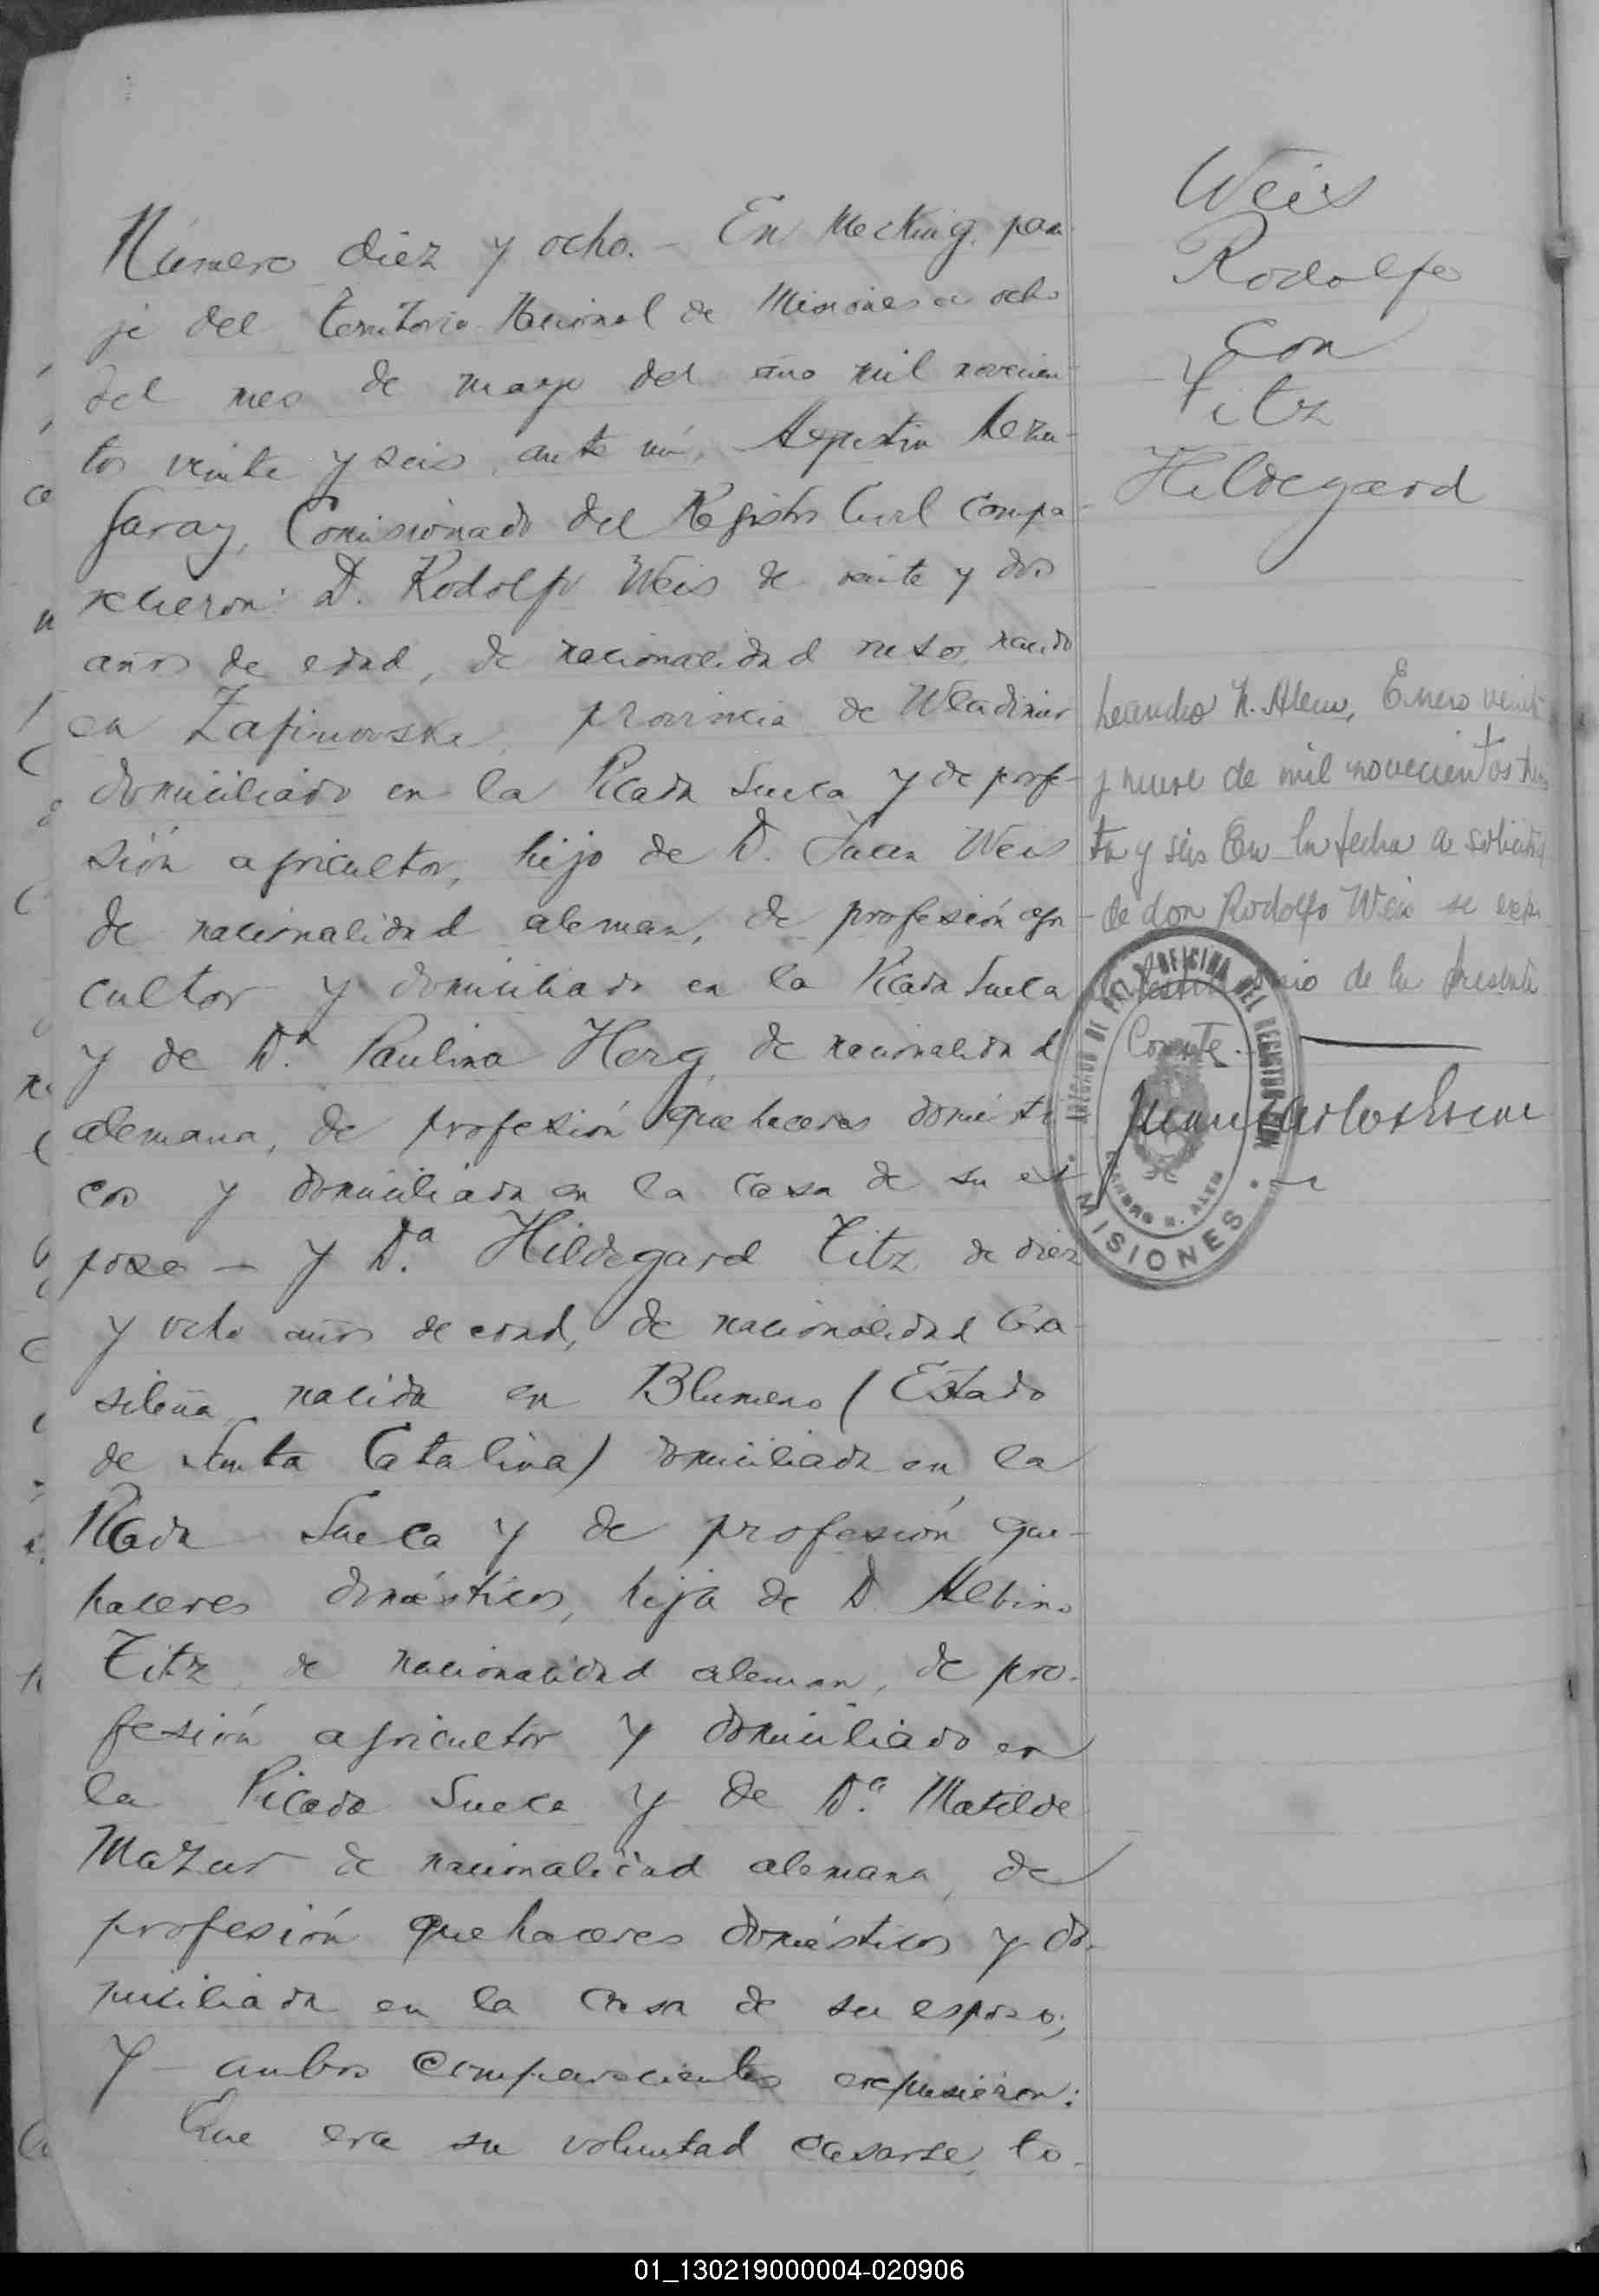 Número diez y ocho. – En Mecking, para-
je del territorio Nacional de Misiones a ocho
del mes de mayo del año mil novecien-
tos veinte y seis, ante mí, Agustin
Garay, Comisionado del Registro Civil compa-
recieron: D. Rodolfo Weis de veinte y dos
años de edad, de nacionalidad ruso, nacido
en Zafinowske, provincia de Wladimir
domiciliado en la Picada Sueca y de profe-
sión agricultor, hijo de D. Juan Weis
de nacionalidad aleman, de profesión agri
cultor y domiciliado en la Picada Sueca
y de Dª. Paulina Herg, de nacionalidad
alemana, de profesión quehaceres domésti
cos y domiciliada en la casa de su es-
poso – y Dª. Hildegard Titz de diez
y ocho años de edad, de nacionalidad bra-
sileña nacida en Blumeno (Estado
de Santa Catalina) domiciliada en la
Picada Sueca y de profesión que-
haceres domésticos, hija de D Albino
Titz, de nacionalidad aleman, de pro-
fesión agricultor y domiciliado en
la Picada Sueca y de Dª. Matilde
Mazur de nacionalidad alemana, de
profesión quehaceres domésticos y do-
miciliada en la casa de su esposo;
Y ambos comparecientes expusieron:
Que era su voluntad casarse, to-
Weis
Rodolfo
con
Titz
Hildegard
Leandro N. Alem, Enero veinte
y nueve de mil novecientos trein
ta y seis En la fecha a solicitud
de don Rodolfo Weis se expi
testimonio de la presente
Conste.
OFICINA DEL REGISTRO
LEANDRO N. ALEM
MISIONES
01_130219000004-020906